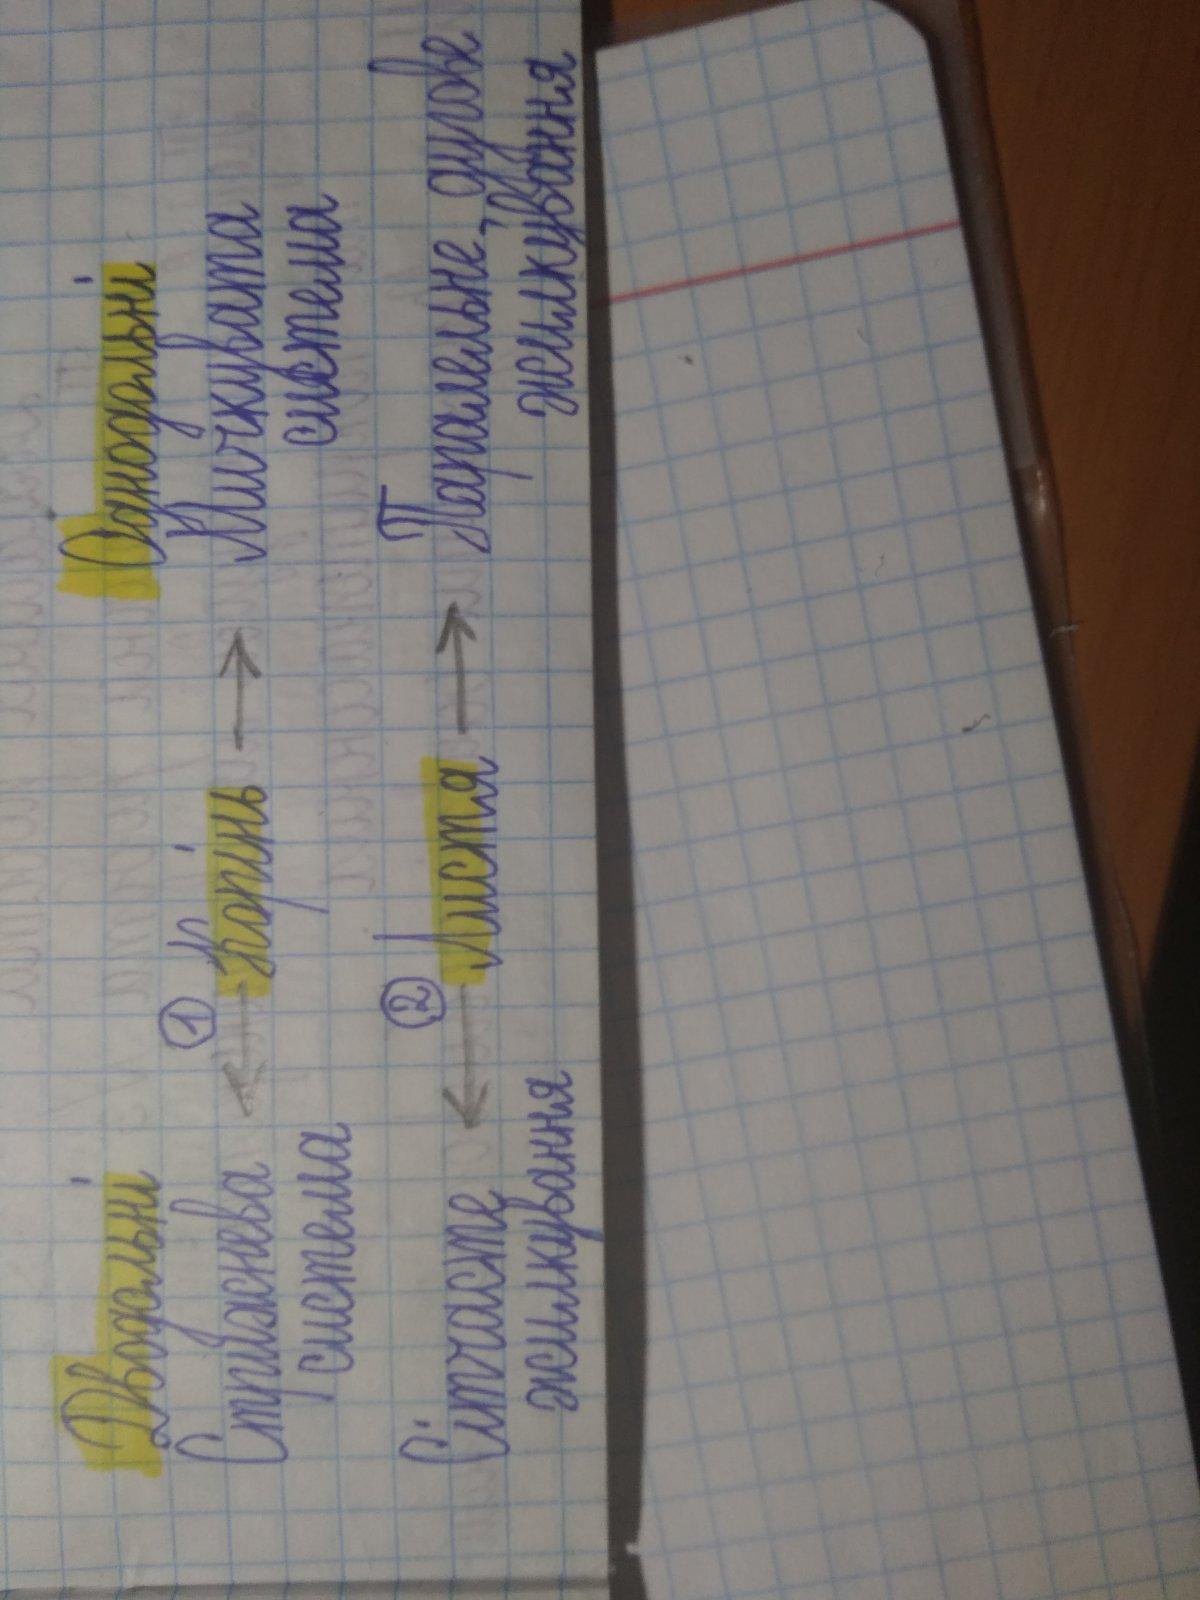 Дводольні Однодольні
Стрижнева ← ① Корінь → Мичкувата
система система
Сітчасте ← ② Листя → Паралельне, дугове
жилкування жилкування